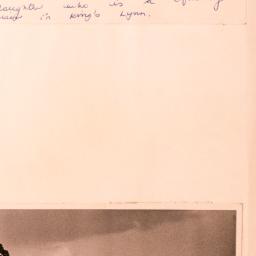 daughter who is a
in King's Lynn.